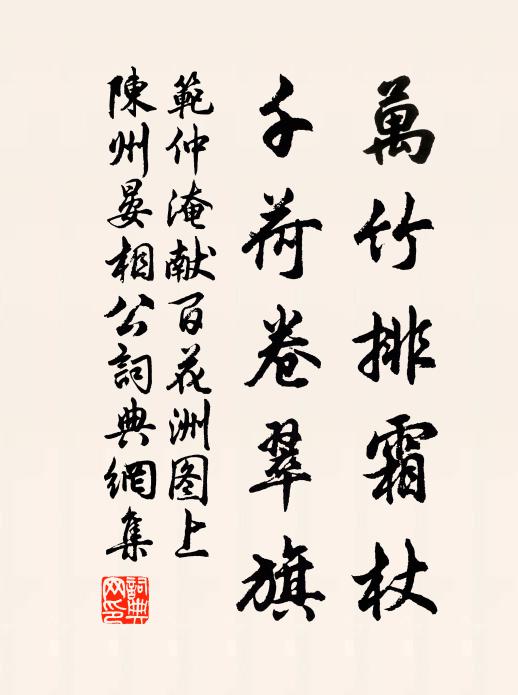 萬竹排霜杖
千荷卷翠旗
範仲淹献百花洲图上
陳州晏相公詞典網集
詞典網印